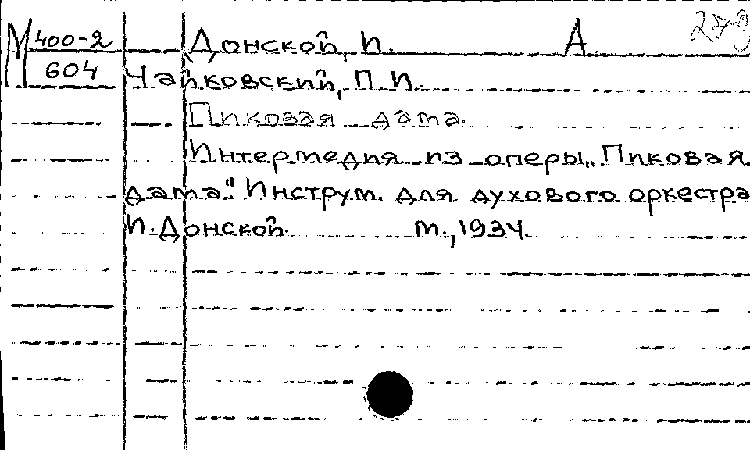 М 400-2 Донской, И. А
604 Чайковский, П. И.
Пиковая дама.
Интермедия из оперы „Пиковая
дама." Инструм. для духового оркестра
И. Донской. М., 1934.